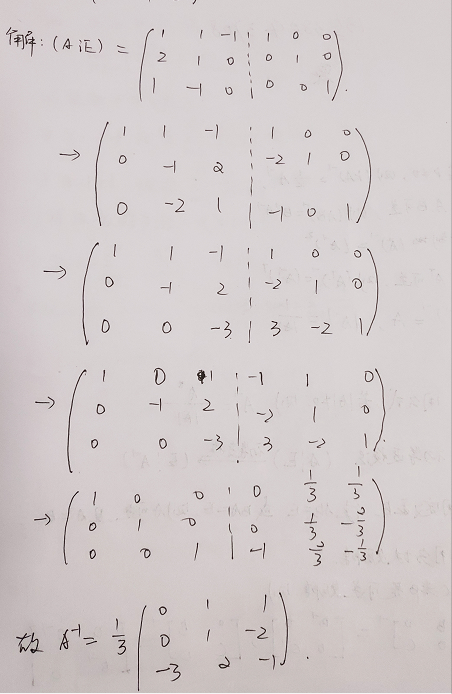 解:(A⋮E) = ( 1 1 -1 ⋮ 1 0 0
2 1 0 ⋮ 0 1 0
1 -1 0 ⋮ 0 0 1 ).
→ ( 1 1 -1 ⋮ 1 0 0
0 -1 2 ⋮ -2 1 0
0 -2 1 ⋮ -1 0 1 )
→ ( 1 1 -1 ⋮ 1 0 0
0 -1 2 ⋮ -2 1 0
0 0 -3 ⋮ 3 -2 1 )
→ ( 1 0 1 ⋮ -1 1 0
0 -1 2 ⋮ -2 1 0
0 0 -3 ⋮ 3 -2 1 )
→ ( 1 0 0 ⋮ 0 1/3 1/3
0 1 0 ⋮ 0 1/3 -2/3
0 0 1 ⋮ -1 2/3 -1/3 )
故 A⁻¹ = 1/3 ( 0 1 1
0 1 -2
-3 2 -1 ).